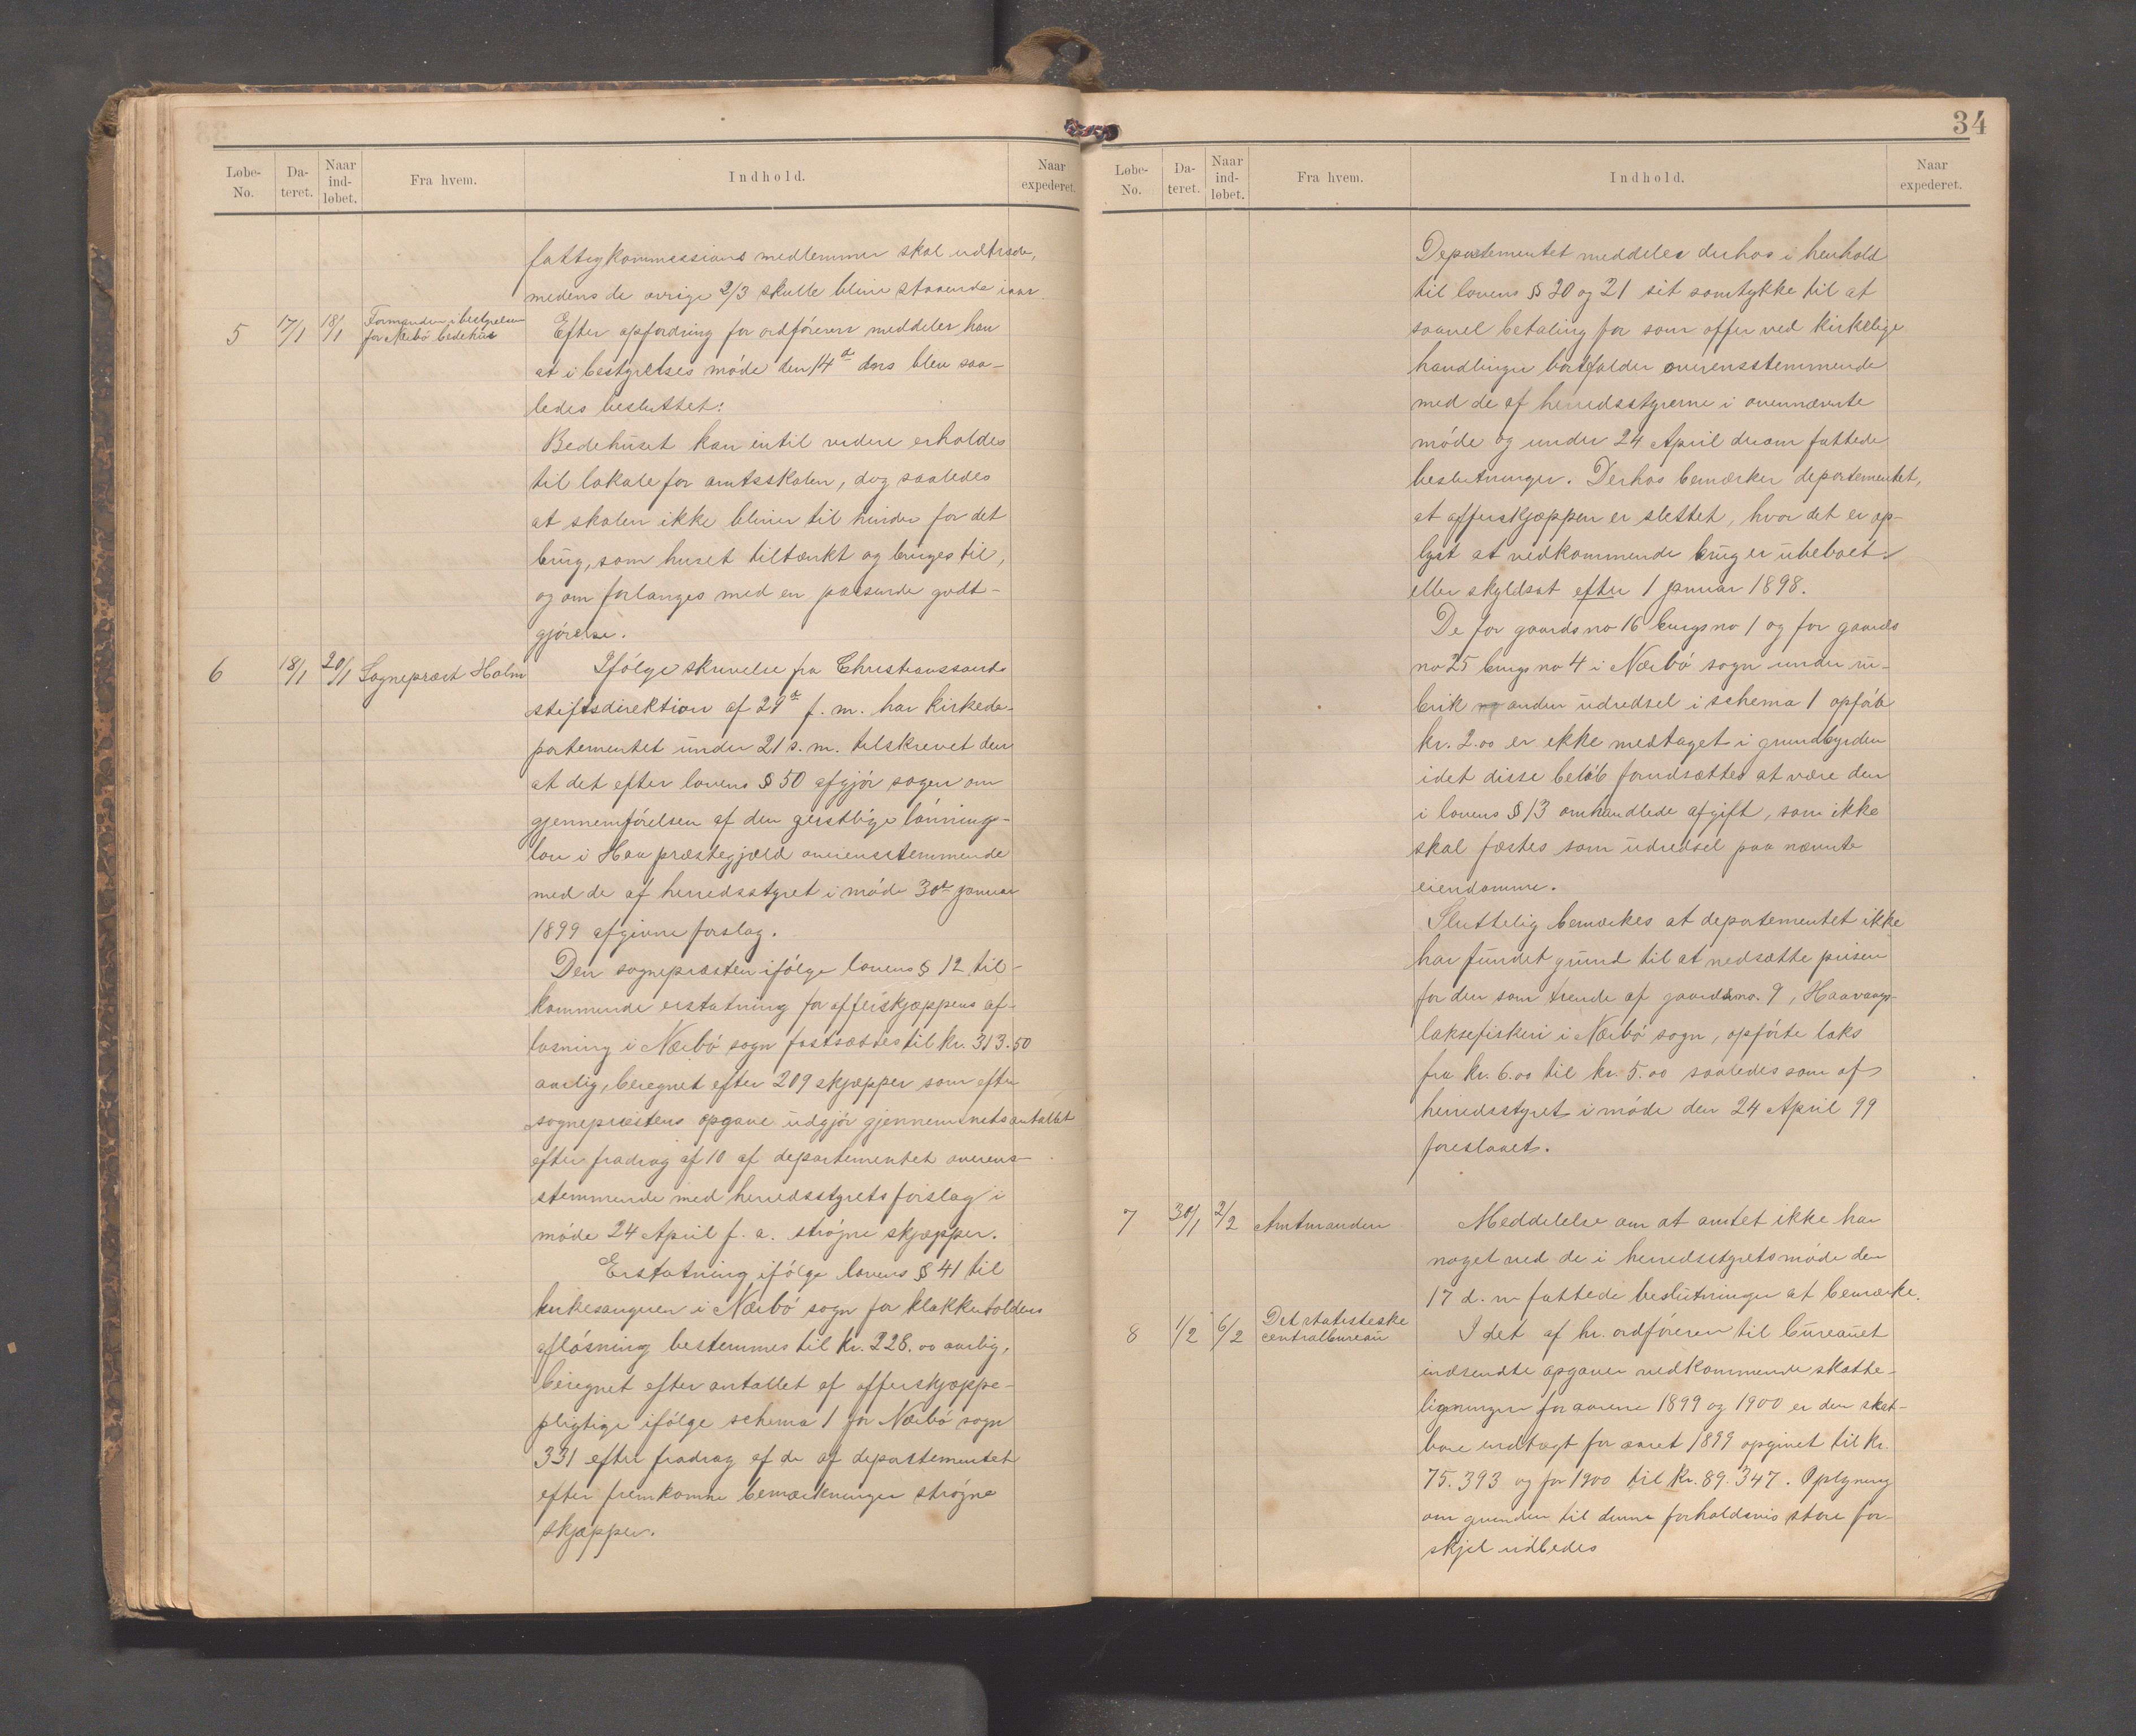 Løbe-
No.
Da-
teret.
Naar
ind-
løbet.
Fra hvem.
Indhold.
Naar
expederet.
fattigkommissions medlemmer skal udtræde,
medens de øvrige 2/3 skulle blive staaende iaar.
5 17/1 18/1 Formanden i bestyrelsen
for Nærbø bedehus
Efter opfordring fra ordføreren meddeler han
at i bestyrelses møde den 14de ds blev saa-
ledes besluttet:
Bedehuset kan intil videre erholdes
til lokale for amtsskolen, dog saaledes
at skolen ikke bliver til hinder for det
brug, som huset tiltænkt og bruges til,
og om forlanges med en passende godt-
gjørelse.
6 18/1 20/1 Sogneprest Holm
Ifølge skrivelse fra Christianssands
stiftsdirektion af 29de f. m. har kirkede-
partementet under 21 s. m. tilskrevet den
at det efter lovens § 50 afgjør sagen om
gjennemførelsen af den geistlige lønning-
lov i Haa præstegjæld overensstemmende
med de af herredsstyret i møde 30te januar
1899 afgivne forslag.
Den sognepresten ifølge lovens § 12 til-
kommende erstatning for offerskjæppens af-
løsning i Nærbø sogn fastsættes til kr. 313.50
aarlig, beregnet efter 209 skjæpper som efter
sogneprestens opgave udgjør gjennemsnitsantallet
efter fradrag af 10 af departementet overens-
stemmende med herredsstyrets forslag i
møde 24 April f. a. strøgne skjæpper.
Erstatning ifølge lovens § 41 til
kirkesangeren i Nærbø sogn for klokketoldens
afløsning bestemmes til kr. 228.00 aarlig,
beregnet efter antallet af offerskjæppe-
pligtige ifølge schema 1 for Nærbø sogn
331 efter fradrag af de af departementet
efter fremkomne bemærkninger strøgne
skjæpper.
34
Løbe-
No.
Da-
teret.
Naar
ind-
løbet.
Fra hvem.
Indhold.
Naar
expederet.
Departementet meddeler derhos i henhold
til lovens §§ 20 og 21 sit samtykke til at
saavel betaling for som offer ved kirkelige
handlinger bortfalder overensstemmende
med de af herredsstyrerne i ovennævnte
møde og under 24 April derom fattede
beslutninger. Derhos bemærker departementet,
at offerskjæppen er slettet, hvor det er op-
lyst at vedkommende brug er ubeboet
eller skyldsat efter 1 januar 1898.
De for gaards no 16 brugs no 1 og for gaards
no 25 brugs no 4 i Nærbø sogn under ru-
brik anden udredsel i schema 1 opførte
kr. 2.00 er ikke medtaget i grundbyrden
idet disse beløb forudsættes at være den
i lovens § 13 omhandlede afgift, som ikke
skal fæstes som udredsel paa nævnte
eiendomme.
Sluttelig bemærkes at departementet ikke
har fundet grund til at nedsætte prisen
for den som tiende af gaardsno. 9, Haavaags
laksefiskeri i Nærbø sogn, opførte laks
fra kr. 6.00 til kr. 5.00 saaledes som af
herredsstyret i møde den 24 April 99
foreslaaet.
7 30/1 2/2 Amtmanden
Meddelelse om at amtet ikke har
noget ved de i herredsstyretsmøde den
17 d. m fattede beslutninger at bemærke.
8 1/2 6/2 Det statisteske
centralbureau
I det af hr. ordføreren til bureauet
indsendte opgaver vedkommende skatte-
ligninger for aarene 1899 og 1900 er den skat-
bare indtægt for aaret 1899 opgivet til kr.
75.393 og for 1900 til kr. 89.347. Oplysning
om grunden til denne forholdsvis store for-
skjel udbedes